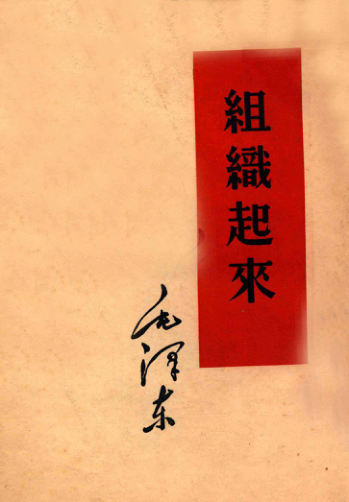 組織起來
毛泽东